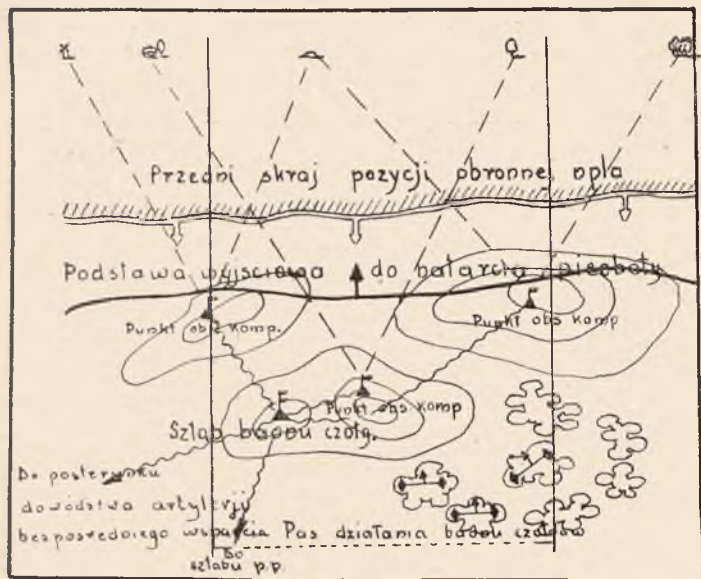 Przedni skraj pozycji obronnej npla
Podstawa wyjściowa do natarcia piechoty
Punkt obs komp.
Punkt obs komp
Punkt obs komp
Sztab baonu czołg.
Do posterunku
dowództwa artylerji
bezpośredniego wsparcia
Pas działania baonu czołgów
do
sztabu p.p.